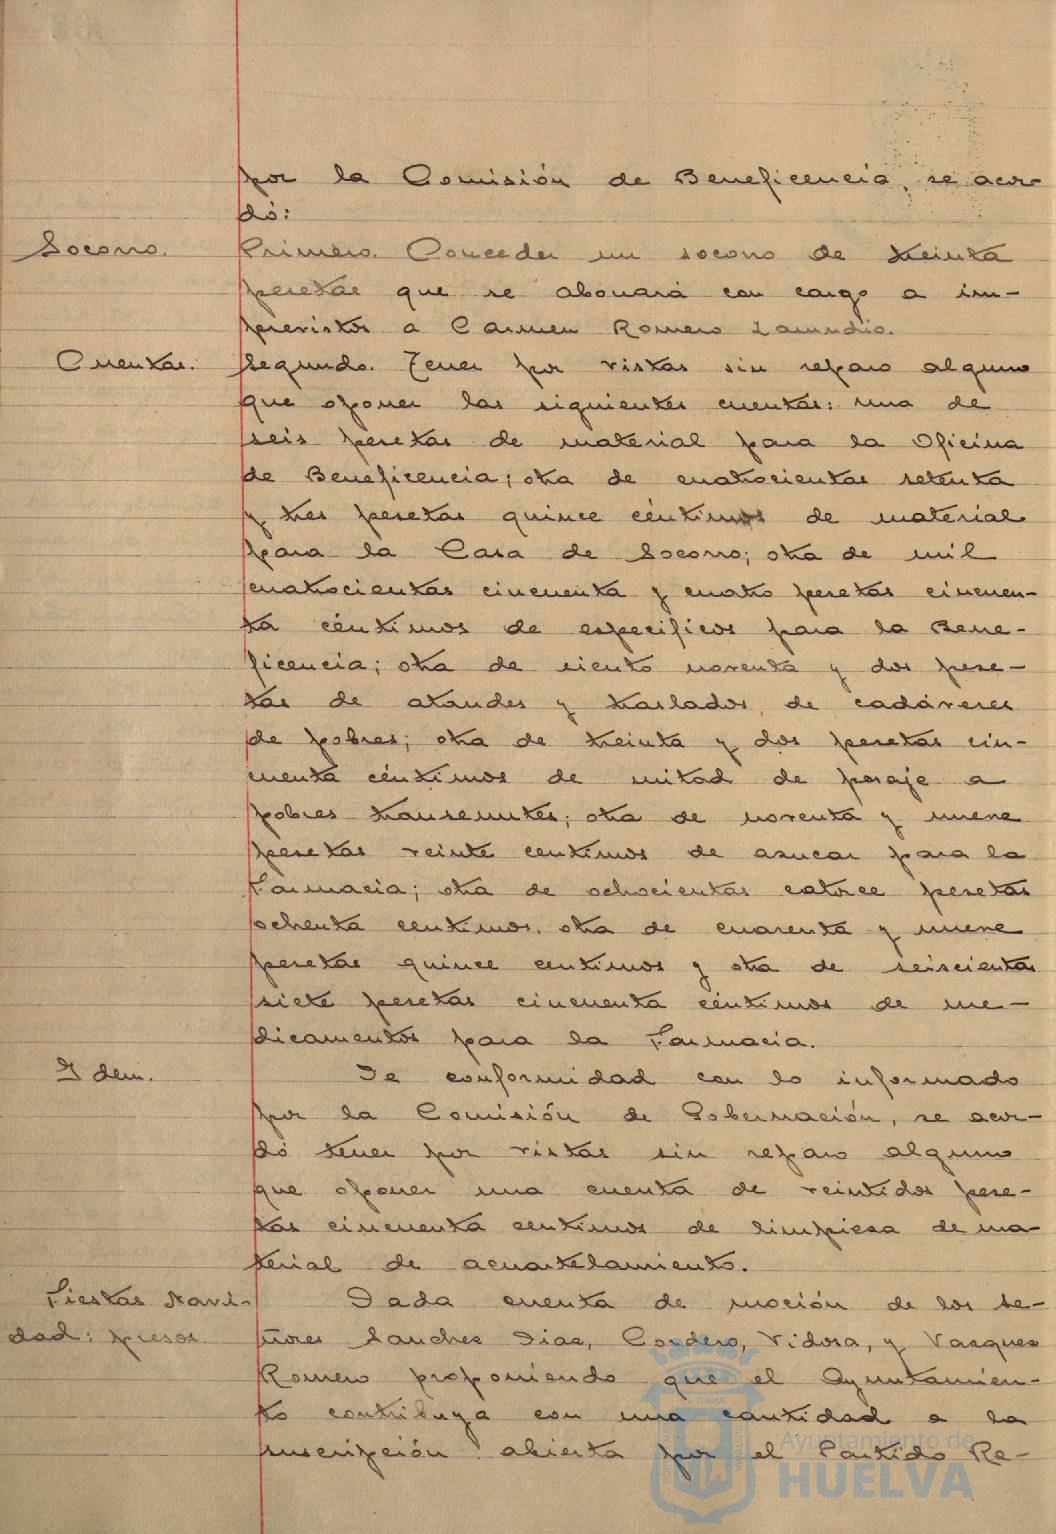 por la Comisión de Beneficencia, se acor-
dó:
Socorro.
Primero. Conceder un socorro de treinta
pesetas que se abonará con cargo a im-
previstos a Carmen Romero
Cuentas.
Segundo. Tener por vistas sin reparo alguno
que oponer las siguientes cuentas: una de
seis pesetas de material para la Oficina
de Beneficencia; otra de cuatrocientas setenta
y tres pesetas quince céntimos de material
para la Casa de Socorro; otra de mil
cuatrocientas cincuenta y cuatro pesetas cincuen-
ta céntimos de especificos para la Bene-
ficencia; otra de ciento noventa y dos pese-
tas de ataudes y traslados de cadáveres
de pobres; otra de treinta y dos pesetas cin-
cuenta céntimos de mitad de pasaje a
pobres transeuntes; otra de noventa y nueve
pesetas veinte centimos de azucar para la
Farmacia; otra de ochocientas catorce pesetas
ochenta centimos, otra de cuarenta y nueve
pesetas quince centimos y otra de seiscientas
siete pesetas cincuenta céntimos de me-
dicamentos para la Farmacia.
Idem.
De conformidad con lo informado
por la Comisión de Gobernación, se acor-
dó tener por vistas sin reparo alguno
que oponer una cuenta de veintidos pese-
tas cincuenta centimos de limpieza de ma-
terial de acuartelamiento.
Fiestas Navi-
dad: presos
Dada cuenta de moción de los Se-
ñores Sanchez Diaz, Cordero, Vidosa, y Vazquez
Romero proponiendo que el Ayuntamien-
to contribuya con una cantidad a la
suscripción abierta por el Partido Re-
Ayuntamiento de
HUELVA